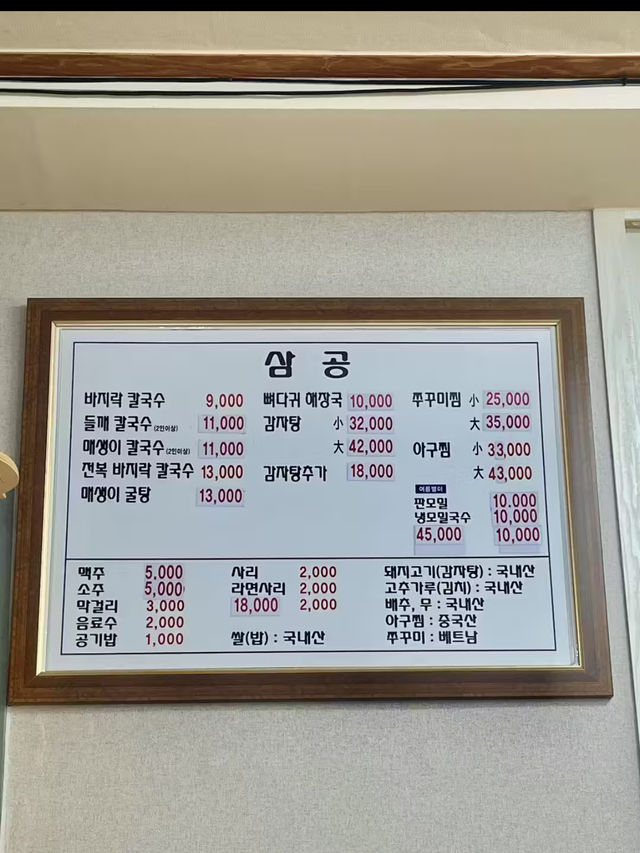 삼공
바지락 칼국수 9,000
들깨 칼국수 (2인이상) 11,000
매생이 칼국수 (2인이상) 11,000
전복 바지락 칼국수 13,000
매생이 굴탕 13,000
뼈다귀 해장국 10,000
감자탕 小 32,000
大 42,000
감자탕추가 18,000
쭈꾸미찜 小 25,000
大 35,000
아구찜 小 33,000
大 43,000
여름별미
판모밀 10.000
냉모밀국수 10,000
45,000 10,000
맥주 5,000
소주 5,000
막걸리 3,000
음료수 2,000
공기밥 1,000
사리 2,000
라면사리 2,000
18,000 2,000
쌀(밥) : 국내산
돼지고기(감자탕) : 국내산
고추가루(김치) : 국내산
배추, 무 : 국내산
아구찜 : 중국산
쭈꾸미 : 베트남